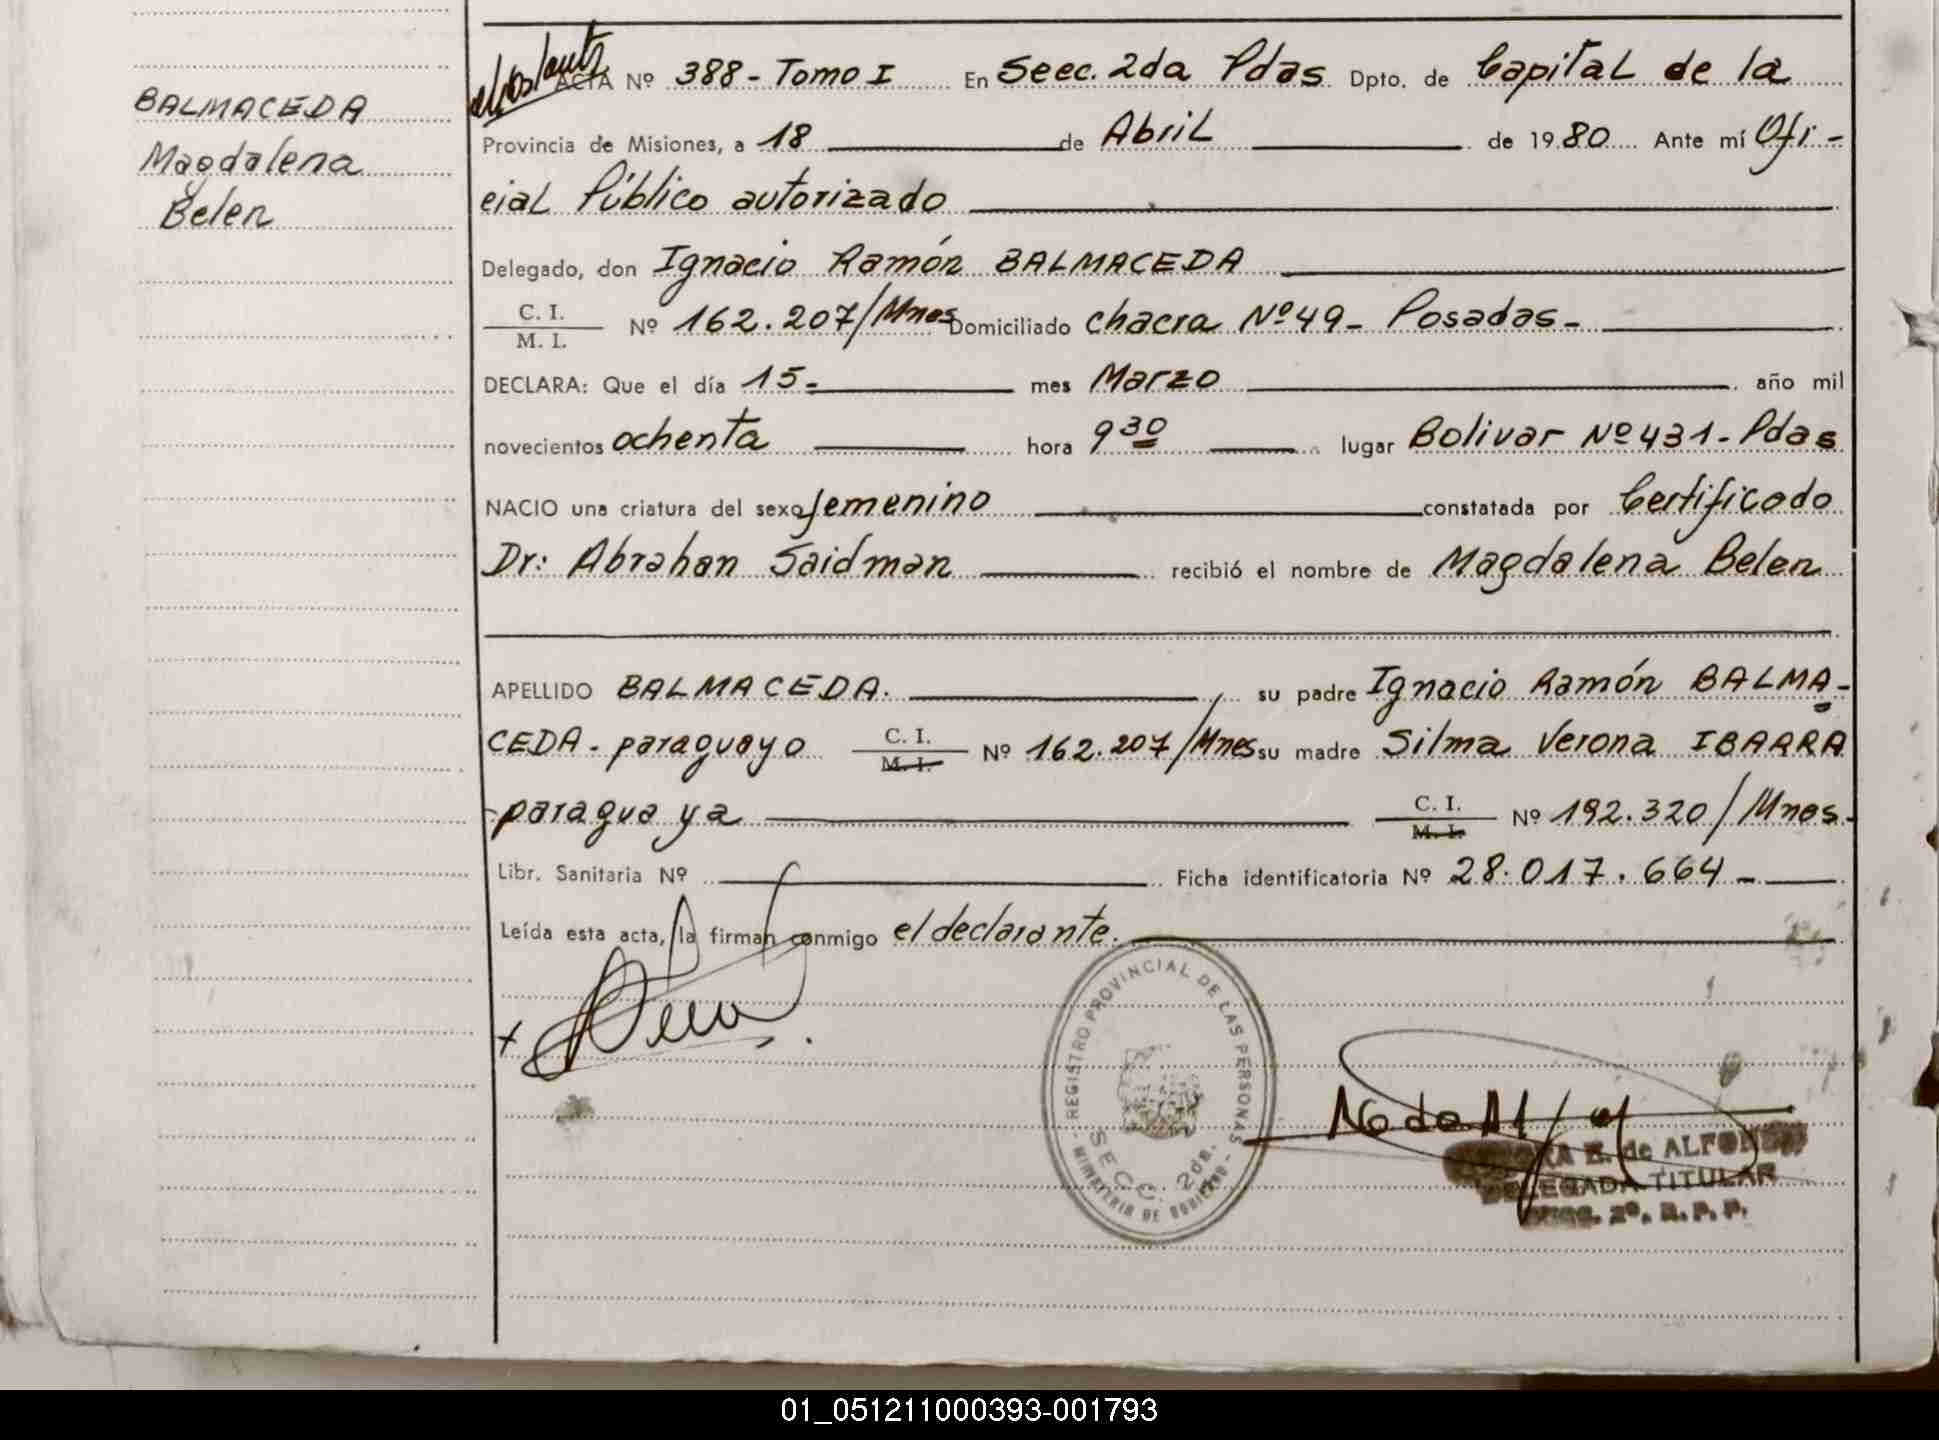 BALMACEDA
Magdalena
Belen
ACTA Nº 388- Tomo I En Secc. 2da Pdas Dpto. de Capital de la
Provincia de Misiones, a 18 de Abril de 1980 Ante mí Ofi-
cial Público autorizado
Delegado, don Ignacio Ramón BALMACEDA
C. I.
M. I.
Nº 162.207/Mnes Domiciliado chacra Nº 49- Posadas-
DECLARA: Que el día 15- mes Marzo año mil
novecientos ochenta hora 9 30 lugar Bolivar Nº 431- Pdas
NACIO una criatura del sexo femenino constatada por Certificado
Dr: Abrahan Saidman recibió el nombre de Magdalena Belen
APELLIDO BALMACEDA. su padre Ignacio Ramón BALMA-
CEDA- paraguayo C. I. M. I. Nº 162.207/Mnes su madre Silma Verona IBARRA
-paraguaya C. I. M. I. Nº 192.320/Mnes.
Libr. Sanitaria Nº Ficha identificatoria Nº 28.017.664-
Leída esta acta, la firman conmigo el declarante.
REGISTRO PROVINCIAL DE LAS PERSONAS
SECC. 2da.
MINISTERIO DE GOBIERNO
E. de ALFONSO
DELEGADA TITULAR
SECC. 2º. R. P. P.
01_051211000393-001793